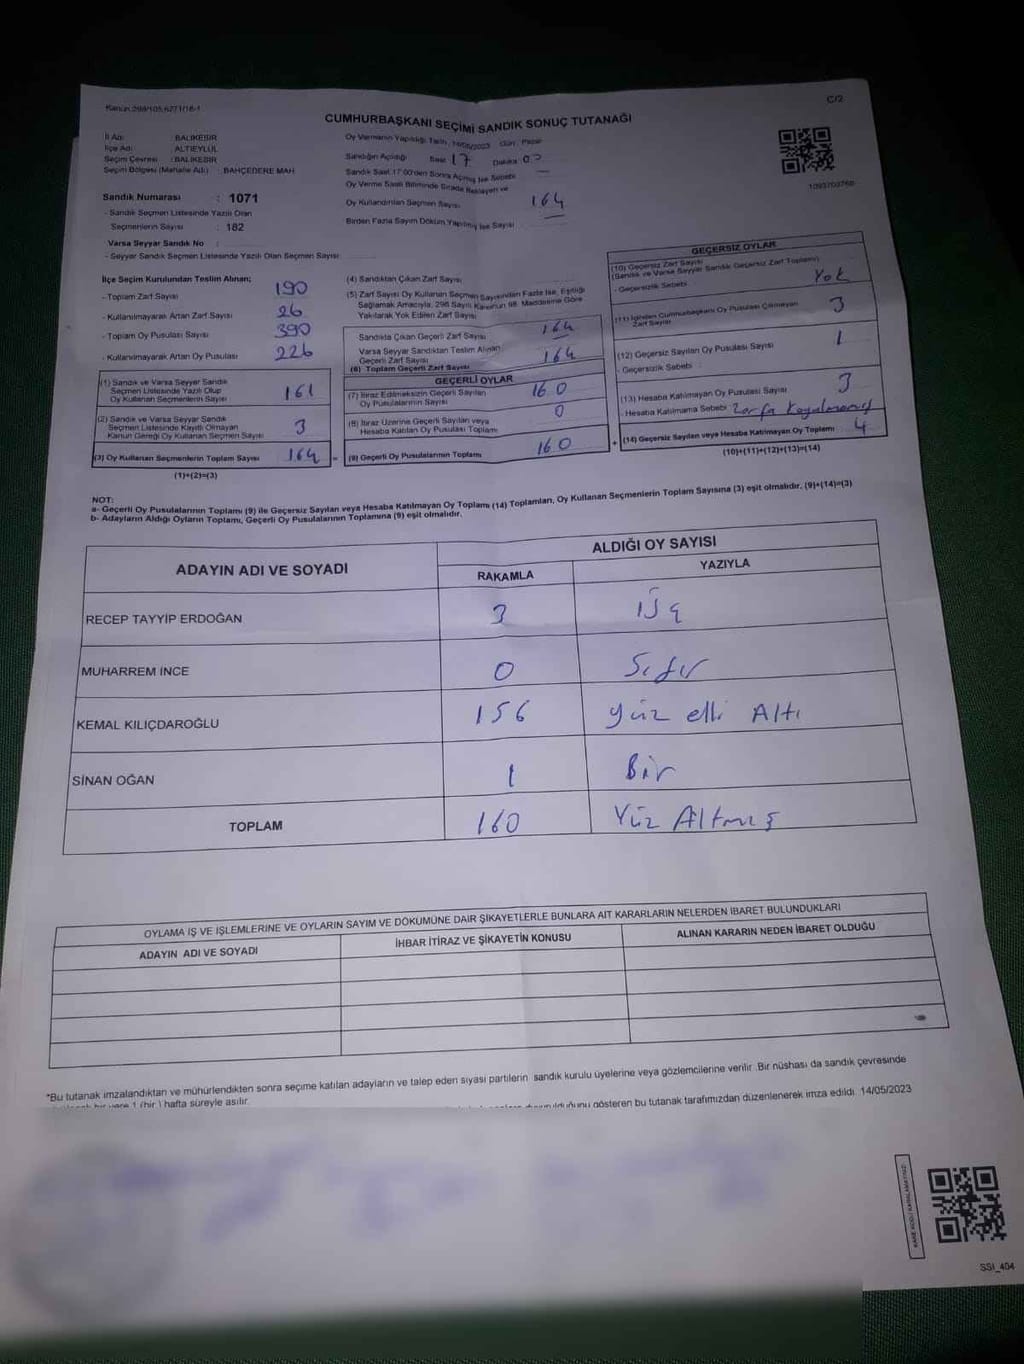 Kanun:298/105,6271/18-1
C/2
CUMHURBAŞKANI SEÇİMİ SANDIK SONUÇ TUTANAĞI
İl Adı : BALIKESİR
İlçe Adı : ALTIEYLÜL
Seçim Çevresi : BALIKESİR
Seçim Bölgesi (Mahalle Adı) : BAHÇEDERE MAH
Sandık Numarası : 1071
- Sandık Seçmen Listesinde Yazılı Olan
Seçmenlerin Sayısı : 182
Varsa Seyyar Sandık No :
- Seyyar Sandık Seçmen Listesinde Yazılı Olan Seçmen Sayısı
Oy Vermenin Yapıldığı Tarih: 14/05/2023 Gün: Pazar
Sandığın Açıldığı Saat 17 Dakika
Sandık Saat 17:00'den Sonra Açılmış İse Sebebi
Oy Verme Saati Bitiminde Sırada Bekleyen ve
Oy Kullandırılan Seçmen Sayısı 164
Birden Fazla Sayım Döküm Yapılmış İse Sayısı
1093703760
İlçe Seçim Kurulundan Teslim Alınan;
- Toplam Zarf Sayısı 190
- Kullanılmayarak Artan Zarf Sayısı 26
- Toplam Oy Pusulası Sayısı 390
- Kullanılmayarak Artan Oy Pusulası 226
(1) Sandık ve Varsa Seyyar Sandık
Seçmen Listesinde Yazılı Olup
Oy Kullanan Seçmenlerin Sayısı 161
(2) Sandık ve Varsa Seyyar Sandık
Seçmen Listesinde Kayıtlı Olmayan
Kanun Gereği Oy Kullanan Seçmen Sayısı 3
(3) Oy Kullanan Seçmenlerin Toplam Sayısı 164 =
(1)+(2)=(3)
(4) Sandıktan Çıkan Zarf Sayısı
(5) Zarf Sayısı Oy Kullanan Seçmen Sayısından Fazla İse, Eşitliği
Sağlamak Amacıyla, 298 Sayılı Kanunun 98. Maddesine Göre
Yakılarak Yok Edilen Zarf Sayısı
Sandıkta Çıkan Geçerli Zarf Sayısı 164
Varsa Seyyar Sandıktan Teslim Alınan
Geçerli Zarf Sayısı
(6) Toplam Geçerli Zarf Sayısı 164
GEÇERLİ OYLAR
(7) İtiraz Edilmeksizin Geçerli Sayılan
Oy Pusulalarının Sayısı 160
(8) İtiraz Üzerine Geçerli Sayılan veya
Hesaba Katılan Oy Pusulası Toplamı 0
(9) Geçerli Oy Pusulalarının Toplamı 160 +
GEÇERSİZ OYLAR
(10) Geçersiz Zarf Sayısı
(Sandık ve Varsa Seyyar Sandık Geçersiz Zarf Toplamı) Yok
- Geçersizlik Sebebi
(11) İçinden Cumhurbaşkanı Oy Pusulası Çıkmayan
Zarf Sayısı 3
(12) Geçersiz Sayılan Oy Pusulası Sayısı 1
- Geçersizlik Sebebi
(13) Hesaba Katılmayan Oy Pusulası Sayısı 3
- Hesaba Katılmama Sebebi Zarfa Koyulmamış
(14) Geçersiz Sayılan veya Hesaba Katılmayan Oy Toplamı 4
(10)+(11)+(12)+(13)=(14)
NOT:
a- Geçerli Oy Pusulalarının Toplamı (9) ile Geçersiz Sayılan veya Hesaba Katılmayan Oy Toplamı (14) Toplamları, Oy Kullanan Seçmenlerin Toplam Sayısına (3) eşit olmalıdır. (9)+(14)=(3)
b- Adayların Aldığı Oyların Toplamı, Geçerli Oy Pusulalarının Toplamına (9) eşit olmalıdır.
ADAYIN ADI VE SOYADI
ALDIĞI OY SAYISI
RAKAMLA YAZIYLA
RECEP TAYYİP ERDOĞAN 3 Üç
MUHARREM İNCE 0 Sıfır
KEMAL KILIÇDAROĞLU 156 Yüz elli Altı
SİNAN OĞAN 1 Bir
TOPLAM 160 Yüz Altmış
OYLAMA İŞ VE İŞLEMLERİNE VE OYLARIN SAYIM VE DÖKÜMÜNE DAİR ŞİKAYETLERLE BUNLARA AİT KARARLARIN NELERDEN İBARET BULUNDUKLARI
ADAYIN ADI VE SOYADI İHBAR İTİRAZ VE ŞİKAYETİN KONUSU ALINAN KARARIN NEDEN İBARET OLDUĞU
*Bu tutanak imzalandıktan ve mühürlendikten sonra seçime katılan adayların ve talep eden siyasi partilerin sandık kurulu üyelerine veya gözlemcilerine verilir. Bir nüshası da sandık çevresinde
bir yere 1 (bir ) hafta süreyle asılır.
gösteren bu tutanak tarafımızdan düzenlenerek imza edildi. 14/05/2023
KARE KODU KARALAMAYINIZ!
SSI_404